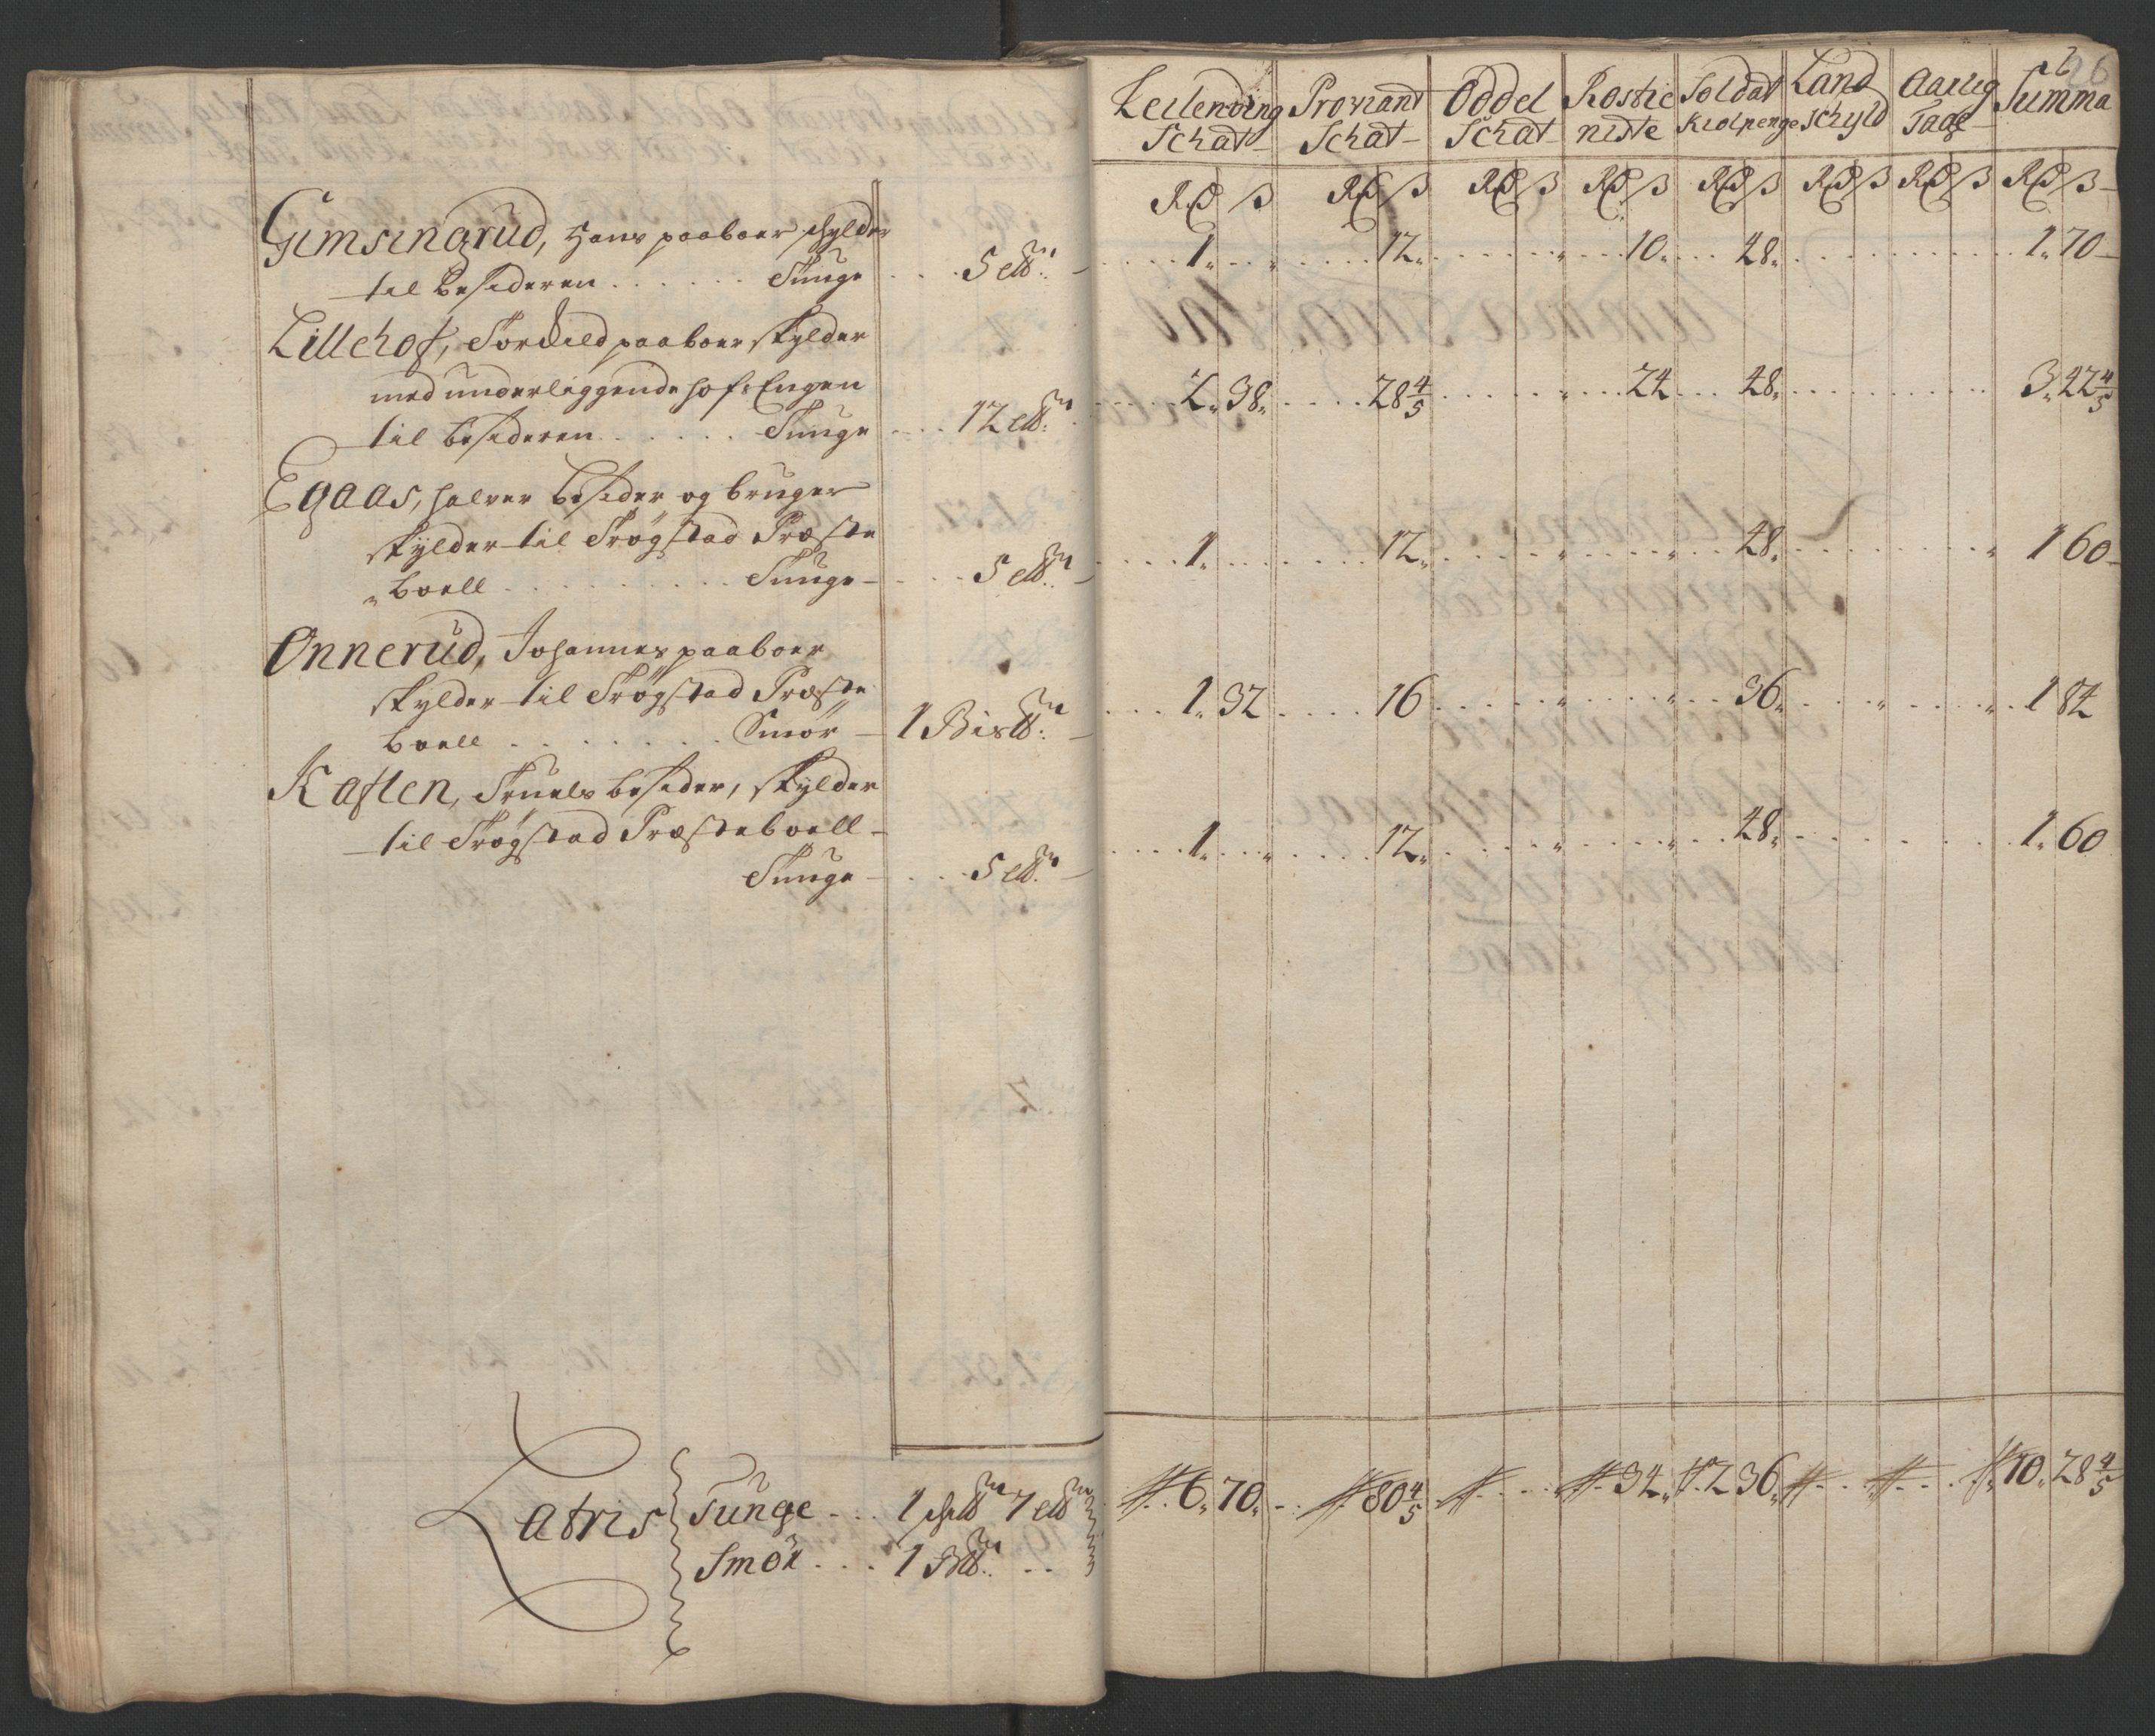 Gimsingrud, Hans paaboer schylder
til besideren . . . . . . Tunge . . 5 ℔
Lillehof, Torkild paaboer skylder
med underliggende Hofs Engen
til besideren . . . . . Tunge . . . 12 ℔
Egaas, Halver besider og bruger
skylder til Trögstad Præste
boell . . . . . . . . . Tunge . . . 5 ℔
Onnerud, Johannes paaboer
skylder til Trögstad Præste
boell . . . . . . . Smör 1 Bis℔
Kaften, Truels besider, skylder
til Trögstad Præsteboell
Tunge . . . 5 ℔
Latris Tunge . . . 1 schl℔ 7 ℔
Smör . . . 1 B℔ . .
26
Leilending Schat Proviant Schat Oddel Schat Rostie niste Soldat Kiolpenge Land Schyld Aarlig Taage Summa
Rd ß Rd ß Rd ß Rd ß Rd ß Rd ß Rd ß Rd ß
1 12 10 48 1 70
2 38 28 4/5 24 48 3 42 4/5
1 12 48 1 60
1 32 16 36 1 84
1 12 48 1 60
6 70 80 4/5 34 2 36 10 28 4/5